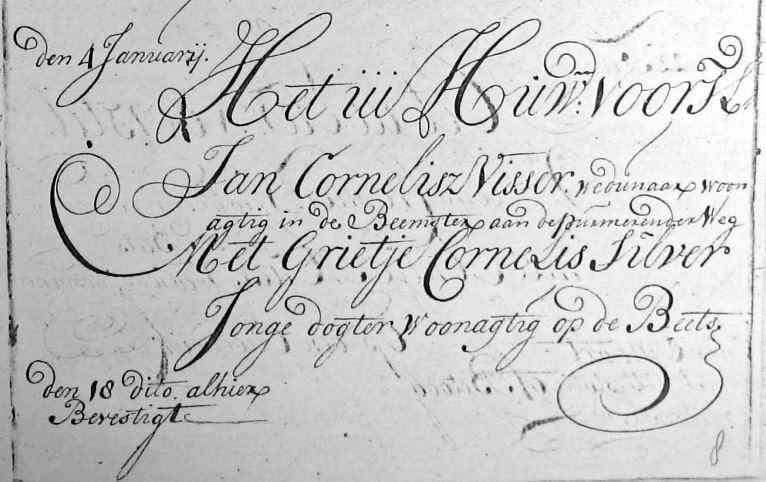 den 4 Januarij.
Het iii Huw:n voorst
Jan Cornelisz Visser. wedunaar woon
agtig in de Beemster aan de purmerender Weg
Met Grietje Cornelis Silver
Jonge dogter Woonagtig op de Beets.
den 18 dito. alhier
Bevestigt
8